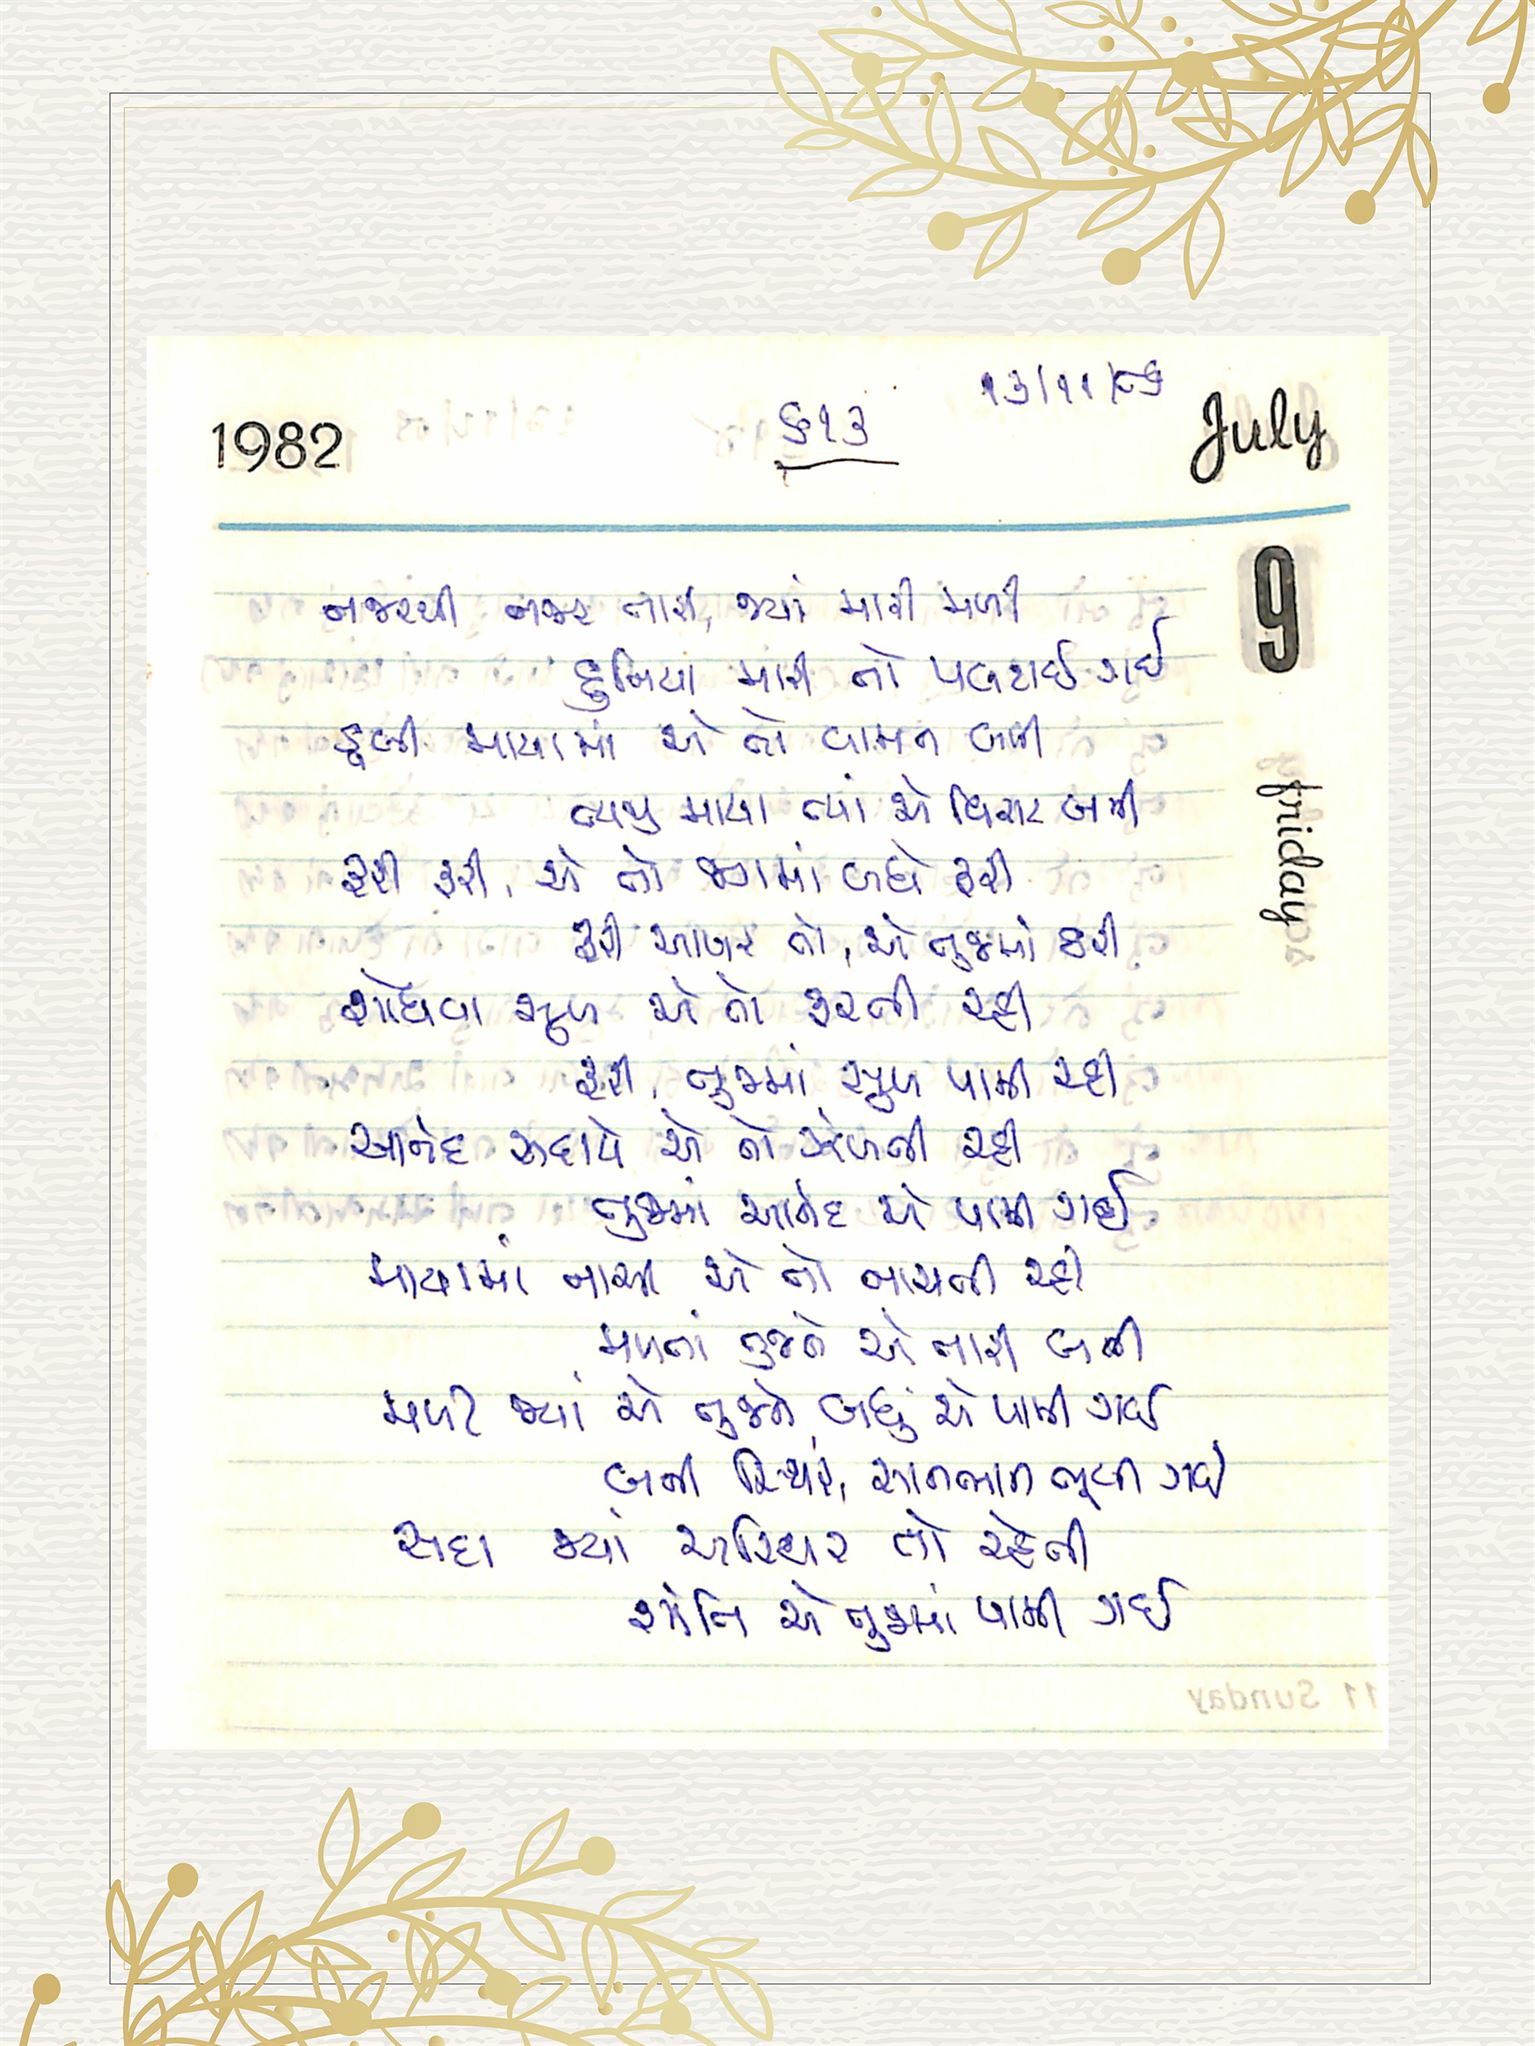 ૧૩/૧૧/૮૬
1982 ૬૧૩ July
9
friday
નજરથી નજર તારી, જ્યાં મારી મળી
દુનિયા મારી તો પલટાઈ ગઈ
ડૂબી માયામાં એ તો વામન બની
ત્યજી માયા ત્યાં એ વિરાટ બની
ફરી ફરી, એ તો જગમાં બધે ફરી
ફરી આખર તો, એ તુજમાં ઠરી
શોધવા સુખ એ તો ફરતી રહી
ફરી, તુજમાં સુખ પામી રહી
આનંદ સદાયે એ તો ખેળતી રહી
તુજમાં આનંદ એ પામી ગઈ
માયામાં નાચી એ તો નાચતી રહી
મળતાં તુજને એ તારી બની
મળી જ્યાં એ તુજને બધું એ પામી ગઈ
બની સ્થિર, સાનભાન ભૂલી ગઈ
સદા જ્યાં અસ્થિર તો રહેતી
શાંતિ એ તુજમાં પામી ગઈ
11 Sunday